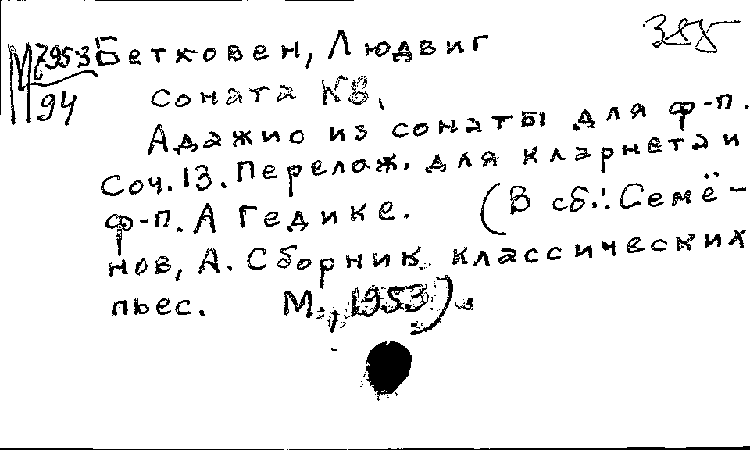 М 795-3 Бетховен, Людвиг
94 соната №8.
Адажио из сонаты для ф-п.
Соч. 13. Перелож. для кларнета и
ф-п. А Гедике. (В сб.: Семё-
нов, А. Сборник классических
пьес. М., 1953).